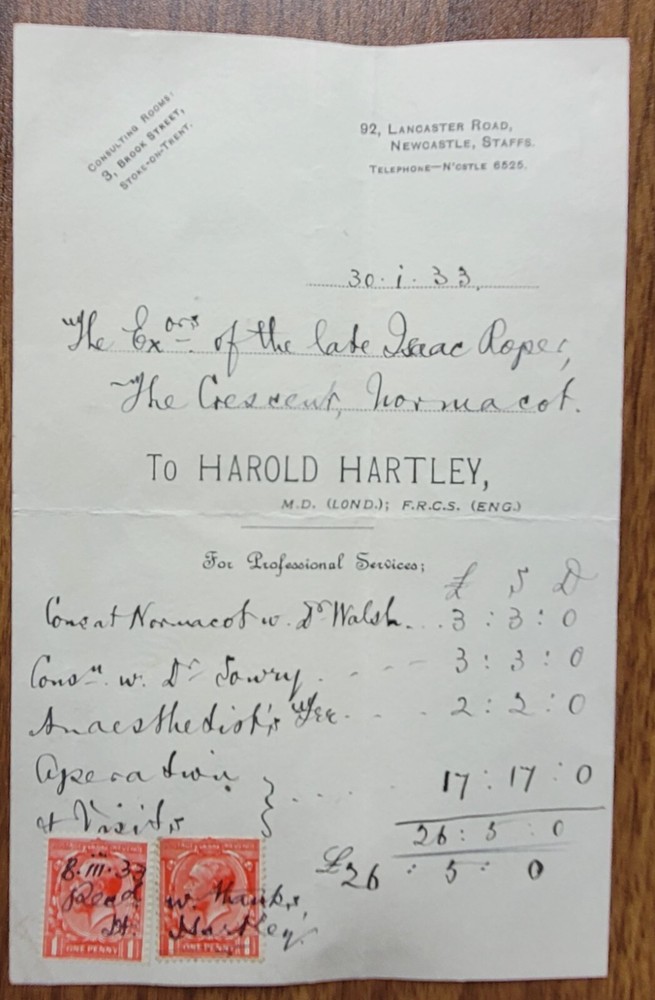 CONSULTING ROOMS:
3, BROOK STREET,
STOKE-ON-TRENT.
92, LANCASTER ROAD,
NEWCASTLE, STAFFS.
TELEPHONE—N'CSTLE 6525.
30. i. 33.
The Exors. of the late Isaac Roper,
The Crescent, Normacot.
To HAROLD HARTLEY,
M.D. (LOND.); F.R.C.S. (ENG.)
For Professional Services;
£ S D
Cons at Normacot w. Dr Walsh... 3 : 3 : 0
Consn. w. Dr Lowry. - - - 3 : 3 : 0
Anaesthetist's Fee. - - - 2 : 2 : 0
Operation
& Visits } . . . . . 17 : 17 : 0
26 : 5 : 0
£26 : 5 : 0
POSTAGE REVENUE POSTAGE REVENUE
8. iii. 33
Recd. w. thanks,
H. Hartley.
1 ONE PENNY 1 1 ONE PENNY 1